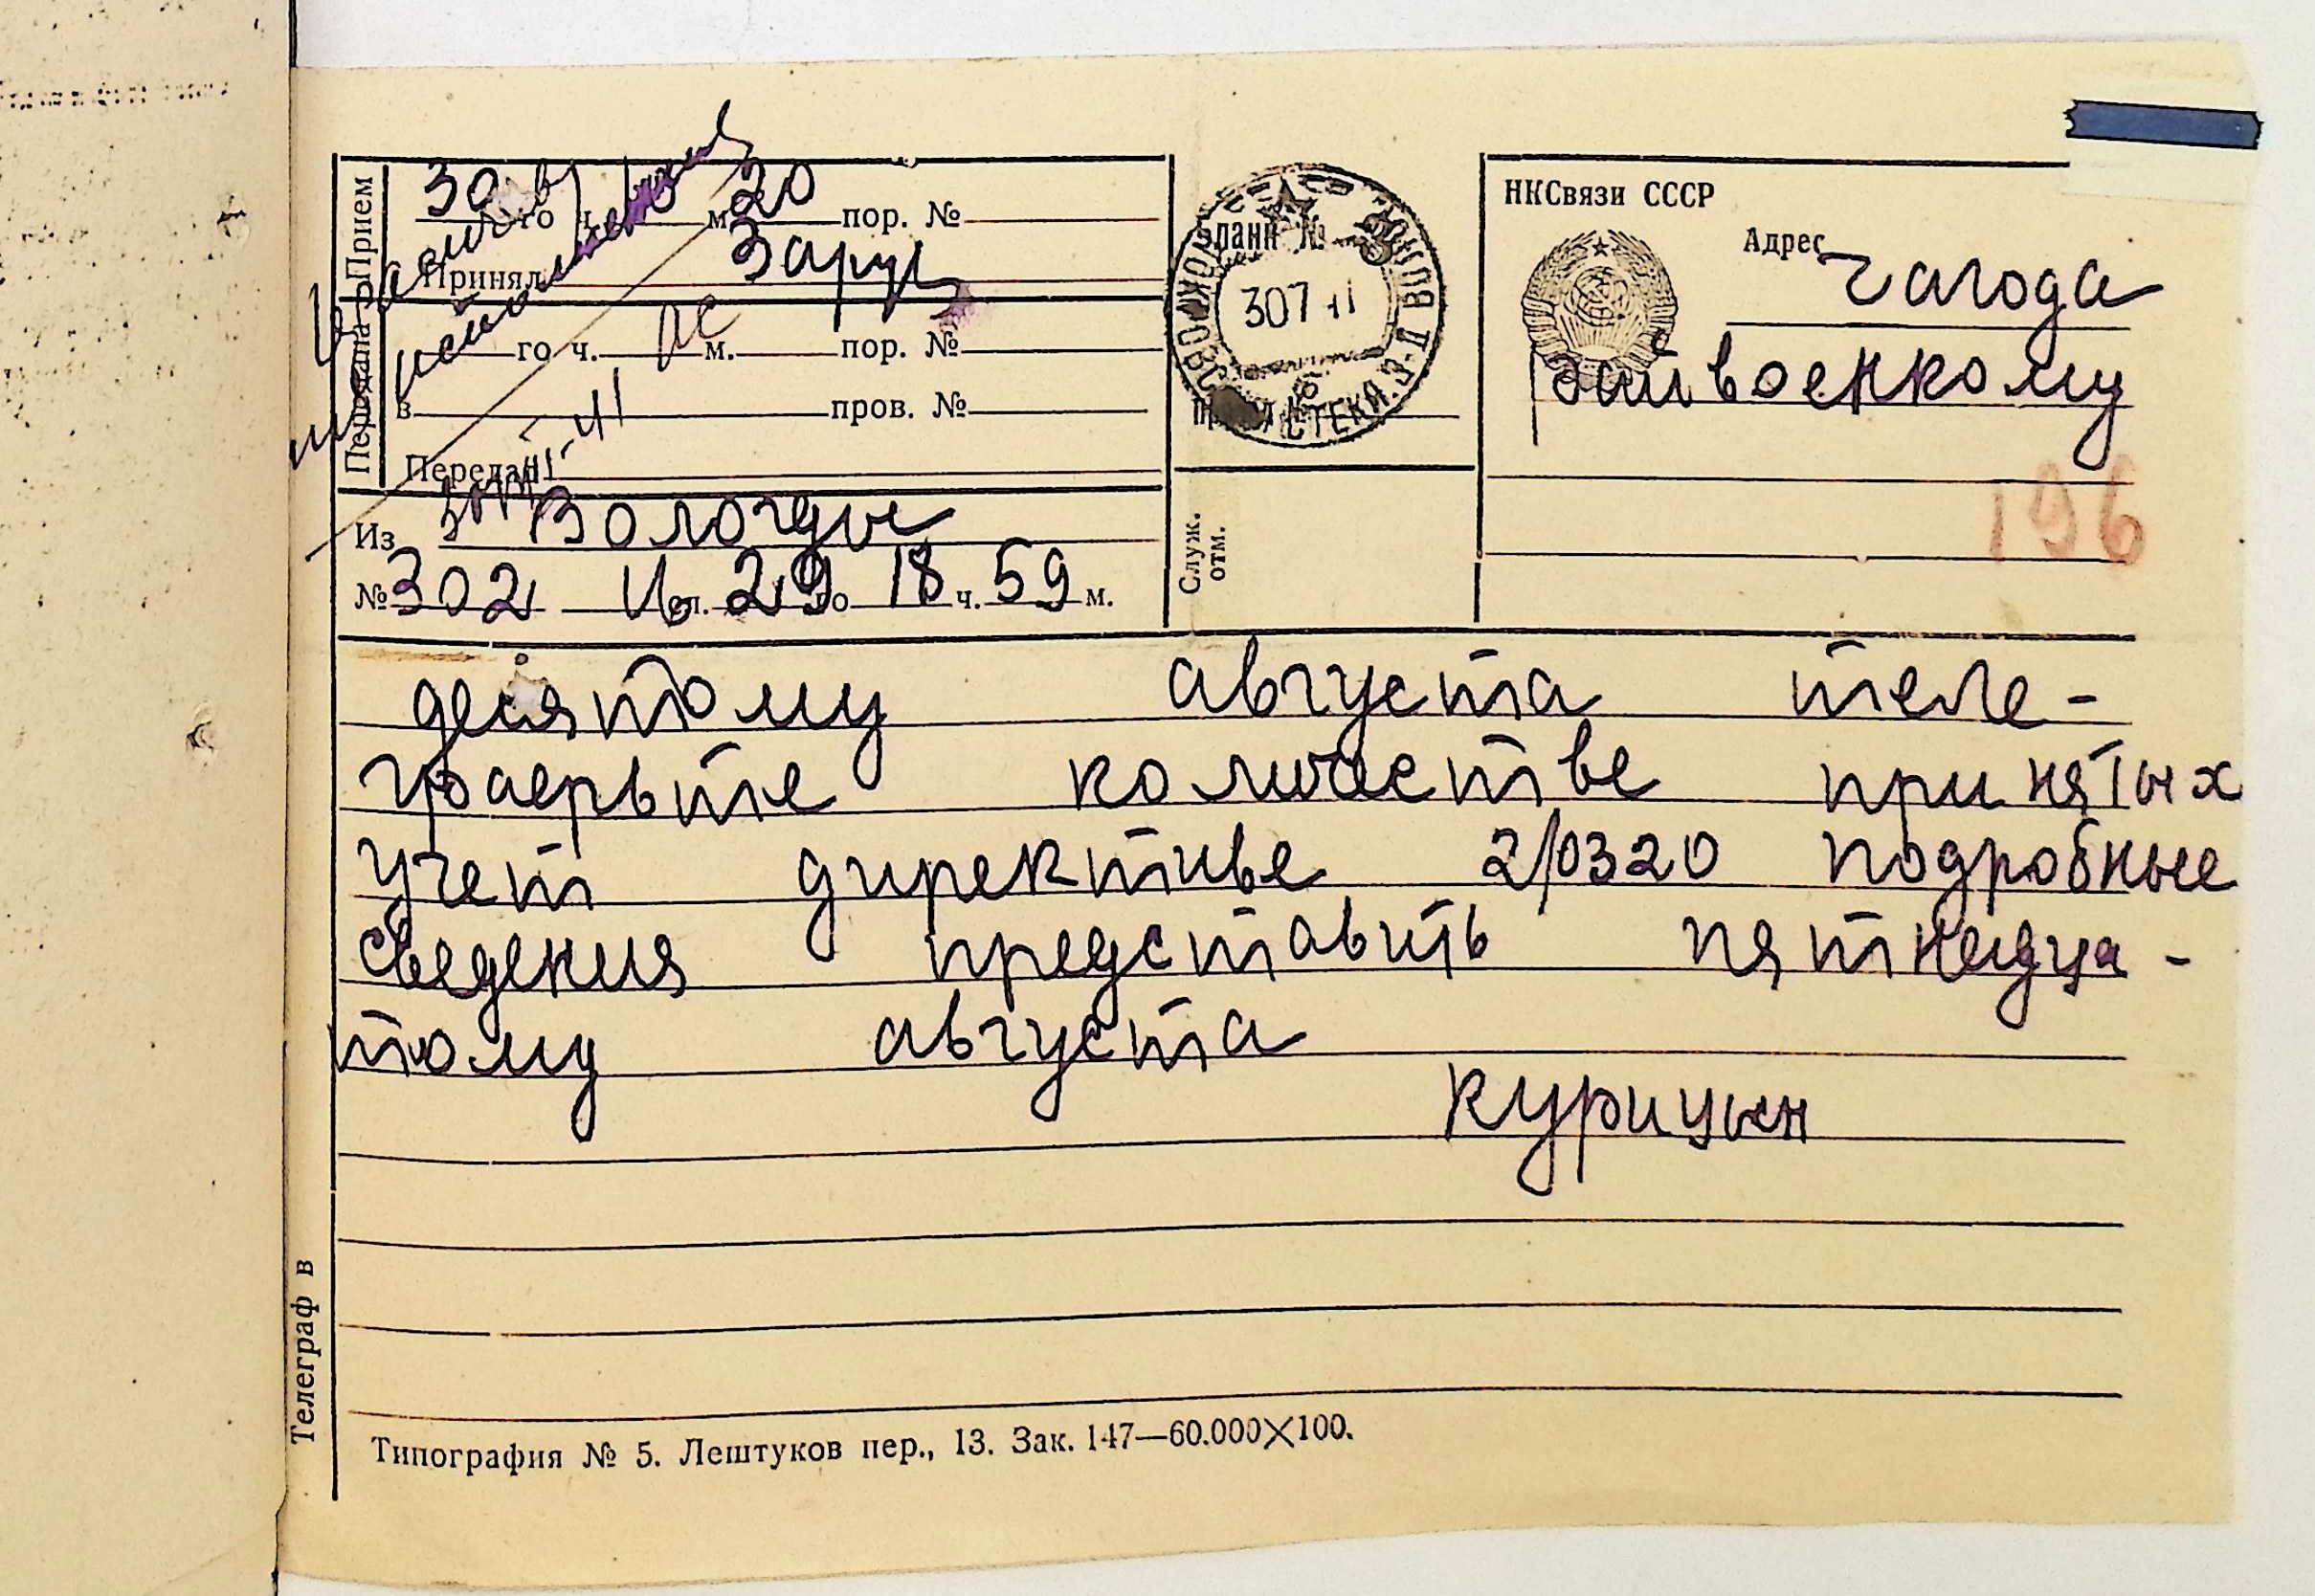 Прием
30 го ч. м. 20 пор. №
Принял
Передача
го ч. м. пор. №
в пров. №
Передал
Из Вологды
№ 302 16 сл. 29 го 18 ч. 59 м.
бланк №
307 41
Служ.
отм.
НКСвязи СССР
Адрес Чагода
Райвоенкому
196
десятому августа теле-
графьте количестве принятых
учет директиве 2/0320 подробные
сведения представить пятнадца-
тому августа
Курицын
Телеграф в
Типография № 5. Лештуков пер., 13. Зак. 147—60.000×100.